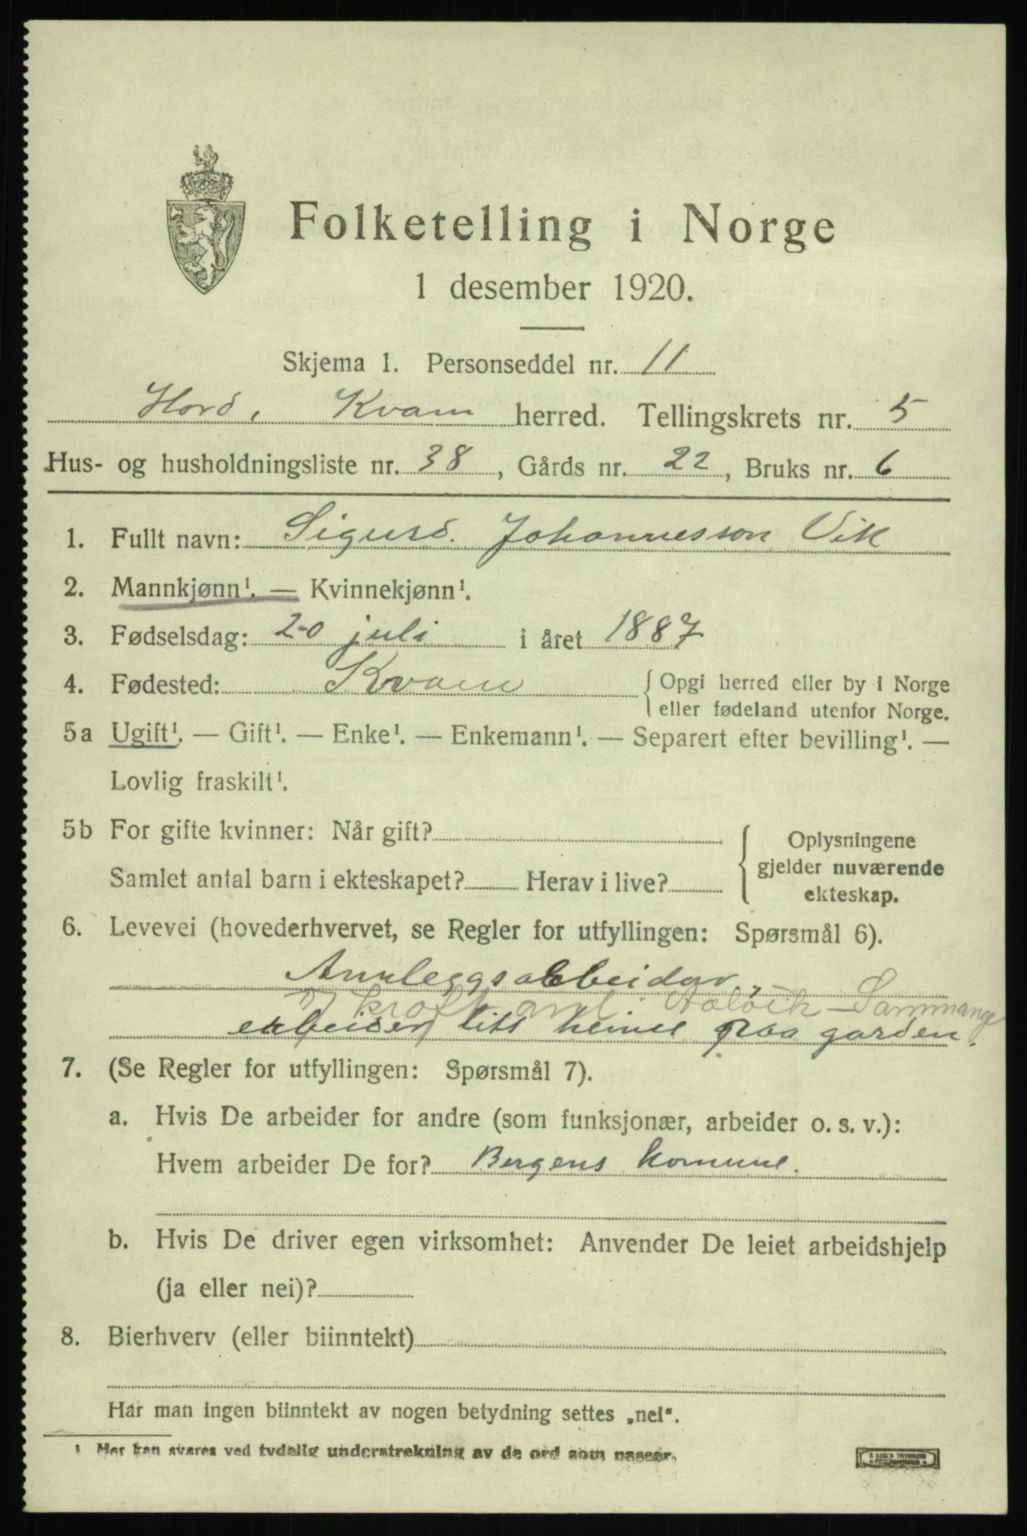 Folketelling i Norge
1 desember 1920.
Skjema 1. Personseddel nr. 11
Hord, Kvam herred. Tellingskrets nr. 5
Hus- og husholdningsliste nr. 38, Gårds nr. 22, Bruks nr. 6
1. Fullt navn: Sigurd Johannesson Vik
2. Mannkjønn¹. — Kvinnekjønn¹.
3. Fødselsdag: 20 juli i året 1887
4. Fødested: Kvam { Opgi herred eller by i Norge
eller fødeland utenfor Norge.
5a Ugift¹. — Gift¹. — Enke¹. — Enkemann¹. — Separert efter bevilling¹. —
Lovlig fraskilt¹.
5b For gifte kvinner: Når gift?
Samlet antal barn i ekteskapet? Herav i live?
Oplysningene
gjelder nuværende
ekteskap.
6. Levevei (hovederhvervet, se Regler for utfyllingen: Spørsmål 6).
Annleggsarbeidar,
kraft anl. Samnanger
arbeider litt heime paa garden.
7. (Se Regler for utfyllingen: Spørsmål 7).
a. Hvis De arbeider for andre (som funksjonær, arbeider o. s. v.):
Hvem arbeider De for? Bergens komune.
b. Hvis De driver egen virksomhet: Anvender De leiet arbeidshjelp
(ja eller nei)?
8. Bierhverv (eller biinntekt)
Har man ingen biinntekt av nogen betydning settes „nei“.
¹ Her kan svares ved tydelig understrekning av de ord som passer.